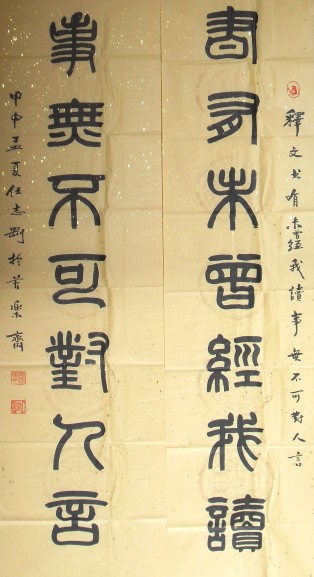 釋文书有未曾經我讀事無不可對人言
書有未曾經我讀
事無不可對人言
甲申孟夏任志剛於樂齋